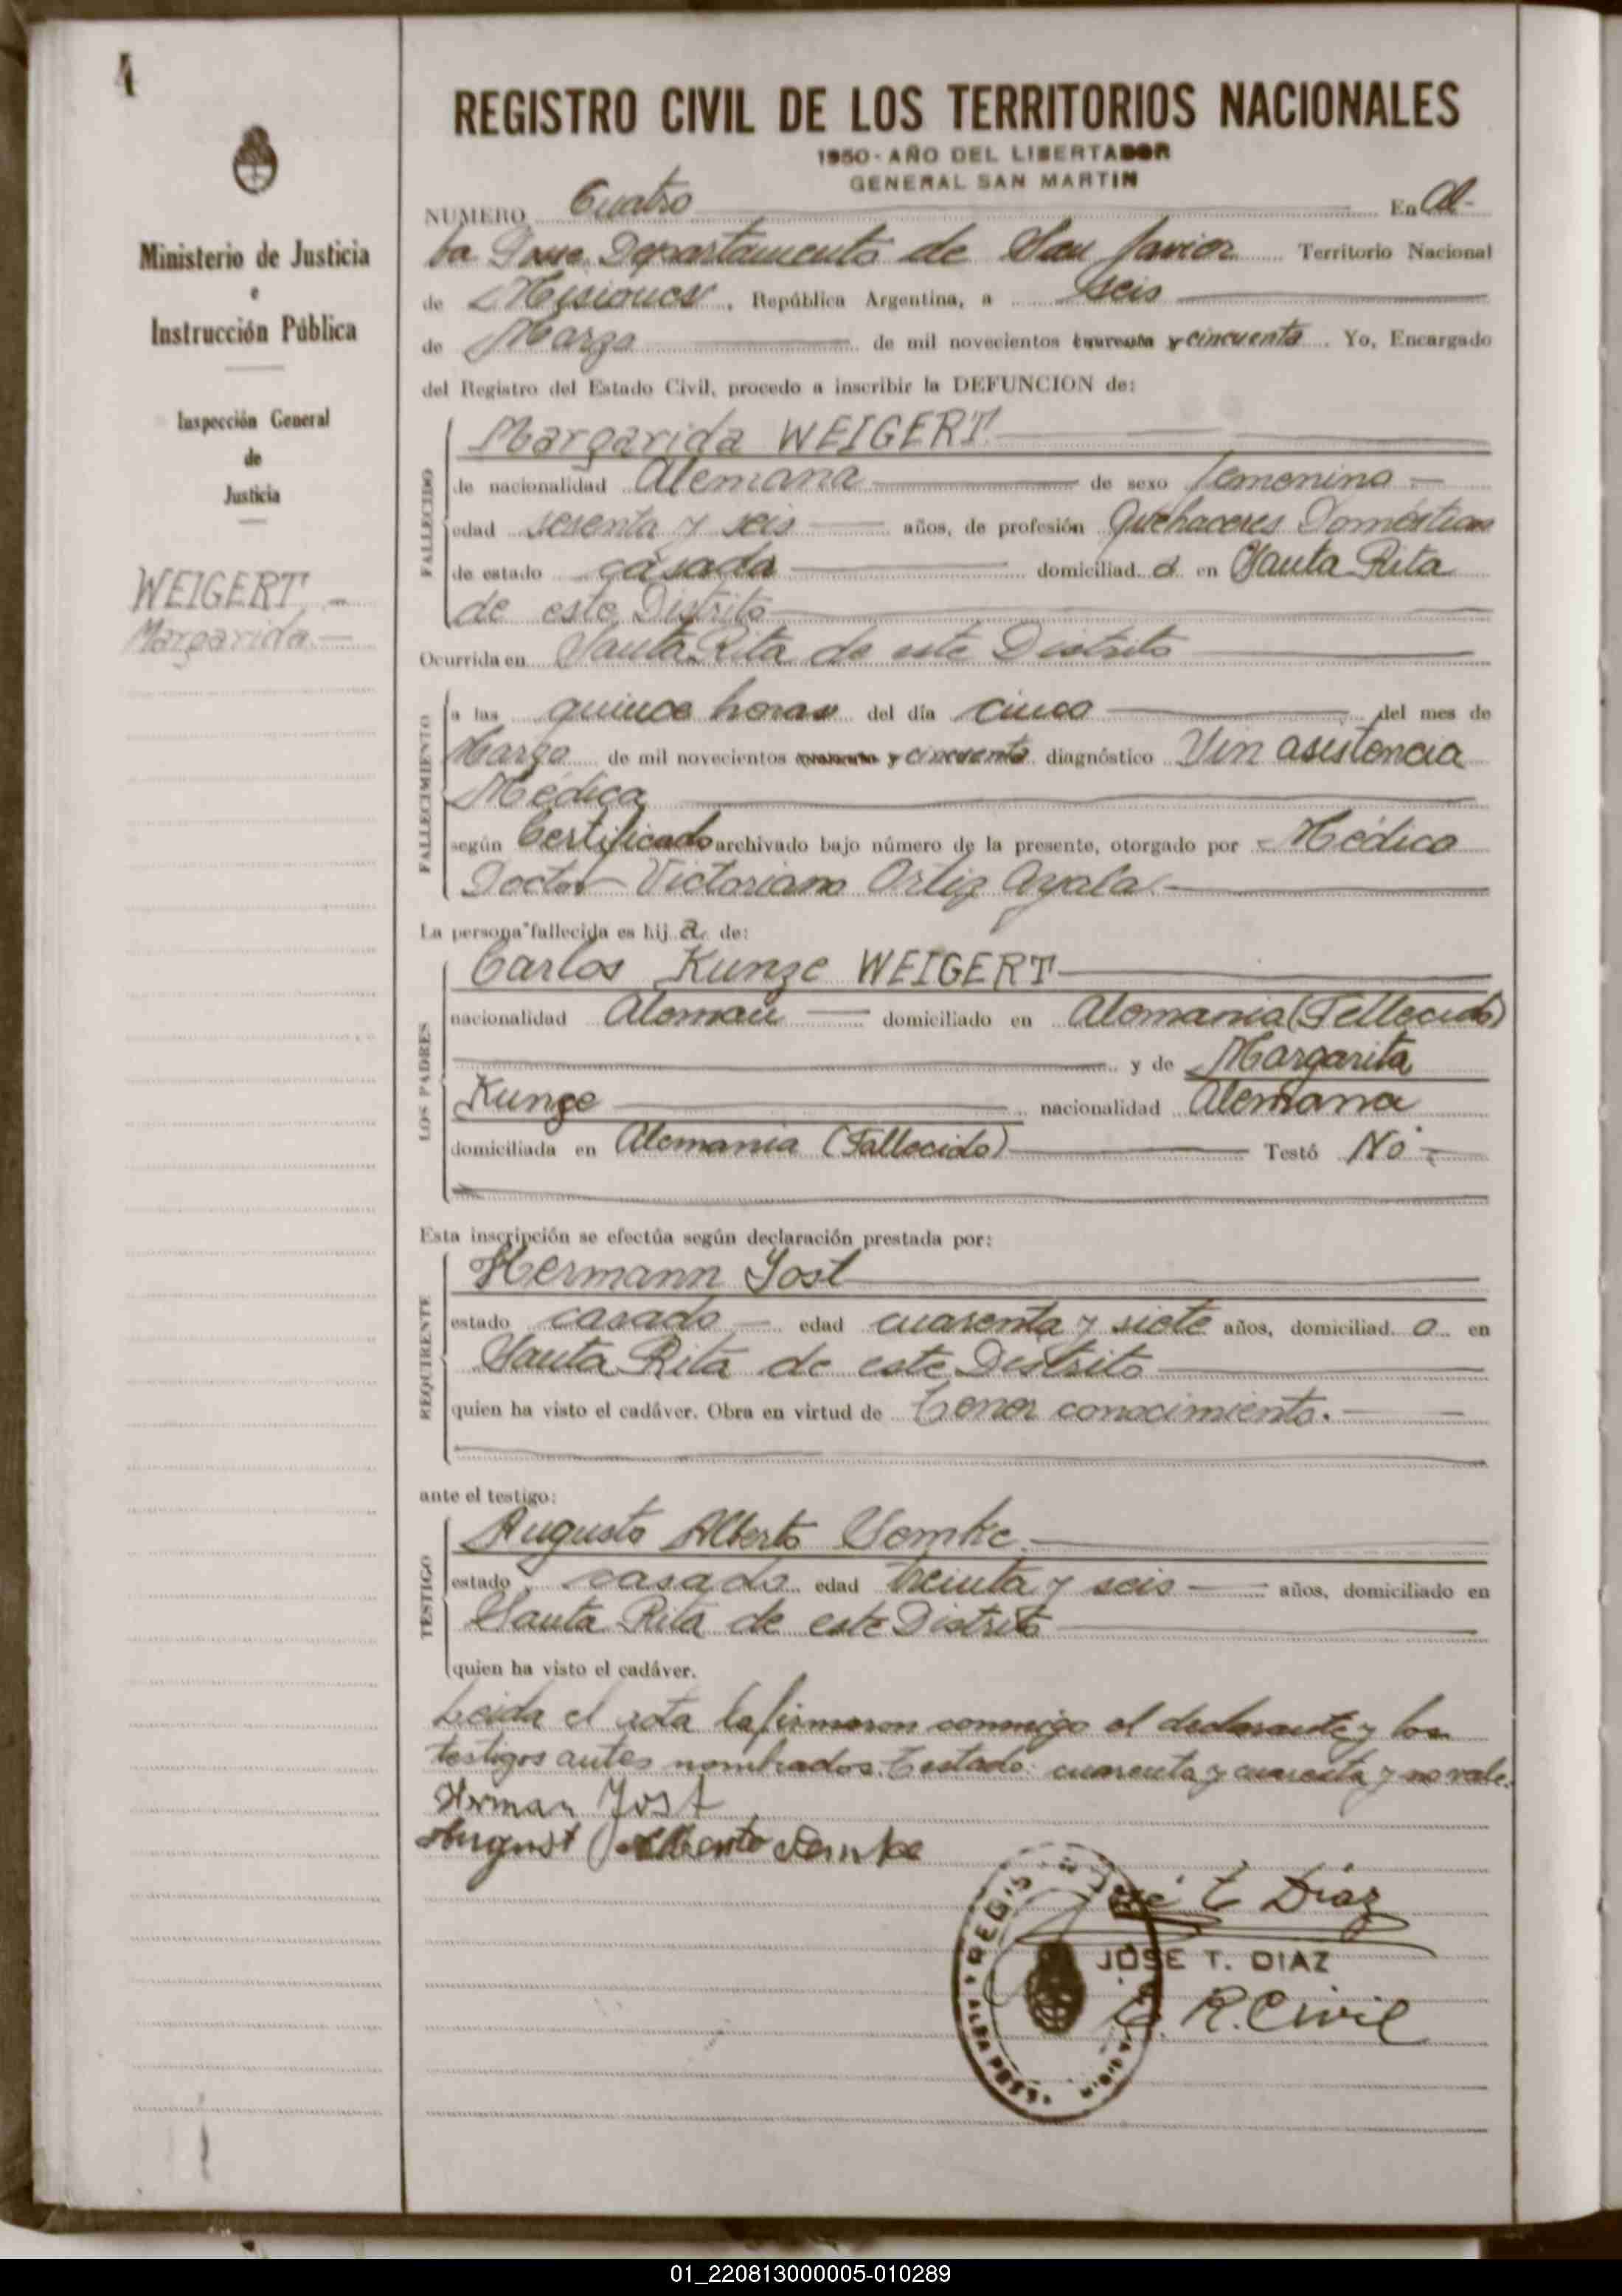 4
Ministerio de Justicia
e
Instrucción Pública
Inspección General
de
Justicia
WEIGERT,
Margarida.
REGISTRO CIVIL DE LOS TERRITORIOS NACIONALES
1950 - AÑO DEL LIBERTADOR
GENERAL SAN MARTIN
NUMERO Cuatro En Al-
ba Posse Departamento de San Javier Territorio Nacional
de Misiones, República Argentina, a seis
de Marzo de mil novecientos cuarenta y cincuenta. Yo, Encargado
del Registro del Estado Civil, procedo a inscribir la DEFUNCION de:
FALLECIDO
Margarida WEIGERT.
de nacionalidad Alemana de sexo femenino.
edad sesenta y seis años, de profesión Quehaceres Domésticos
de estado casada domiciliad a en Santa Rita
de este Distrito
Ocurrida en Santa Rita de este Distrito
FALLECIMIENTO
a las quince horas del día cinco del mes de
Marzo de mil novecientos cuarenta y cincuenta diagnóstico Sin asistencia
Médica
según Certificado archivado bajo número de la presente, otorgado por Médico
Doctor Victoriano Ortiz Ayala.
La persona fallecida es hij a de:
LOS PADRES
Carlos Kunze WEIGERT
nacionalidad Alemán domiciliado en Alemania (Fellecido)
y de Margarita
Kunze nacionalidad Alemana
domiciliada en Alemania (Fallecido) Testó No.
Esta inscripción se efectúa según declaración prestada por:
REQUIRENTE
Hermann Jost
estado casado edad cuarenta y siete años, domiciliad o en
Santa Rita de este Distrito
quien ha visto el cadáver. Obra en virtud de Tener conocimiento.
ante el testigo:
TESTIGO
Augusto Alberto Demke.
estado casado edad treinta y seis años, domiciliado en
Santa Rita de este Distrito
quien ha visto el cadáver.
Leida el acta la firmaron conmigo el declarante y los
testigos antes nombrados. Testado: cuarenta y cuarenta y no vale.
Herman Jost
August Alberto Demke
José T. Diaz
JOSE T. DIAZ
E. R. Civil
ALBA POSSE
01_220813000005-010289